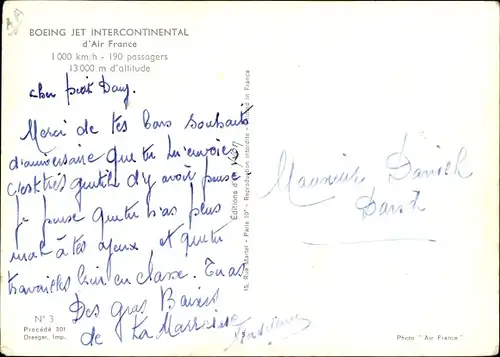 BOEING JET INTERCONTINENTAL
d'Air France
1 000 km/h - 190 passagers
13 000 m d'altitude
cher petit Dany.
Merci de tes bons souhaits
d'anniversaire que tu m'envoies
c'est très gentil d'y avoir pensé
je pense que tu n'as plus
mal à tes yeux, et que tu
travailles bien en classe. Tu as
Des Gros Baisers
de La Marraine
N° 3
Precédé 301
Draeger, Imp.
Editions d'
15, Rue Martel - Paris 10e - Reproduction interdite - Printed in France
Monsieur Daniel
David
Photo "Air France"